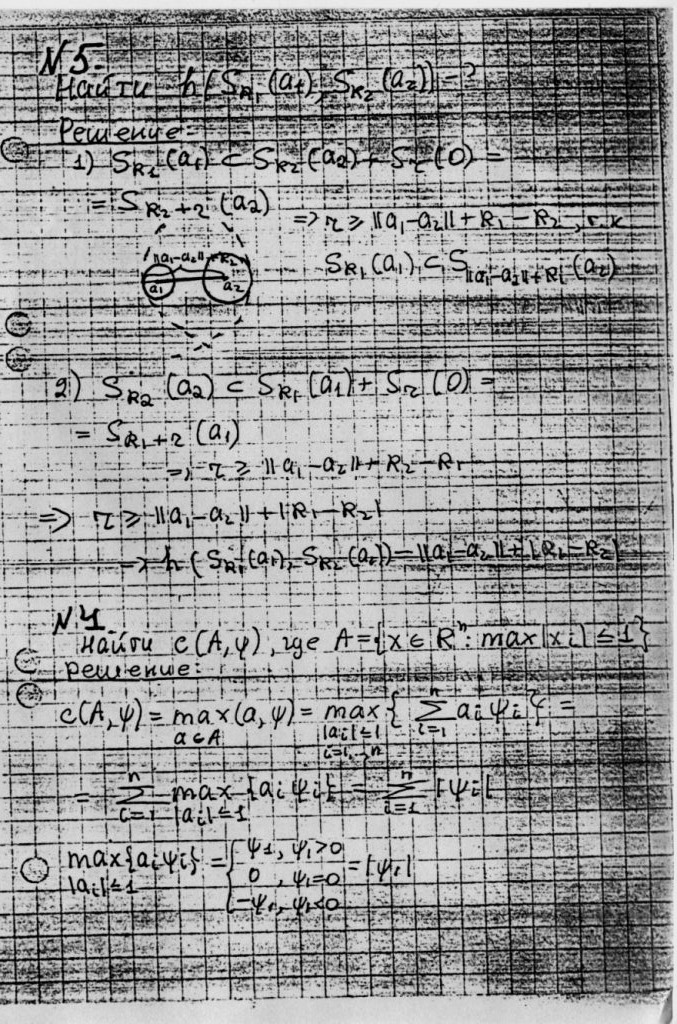 №5.
Найти h(S_{R₁}(a₁), S_{R₂}(a₂)) - ?
Решение:
1) S_{R₁}(a₁) ⊂ S_{R₂}(a₂) + S_r(0) =
= S_{R₂+r}(a₂) ⇒ r ≥ ||a₁-a₂|| + R₁ - R₂, т.к
||a₁-a₂|| + R₁
S_{R₁}(a₁) ⊂ S_{||a₁-a₂||+R₁}(a₂)
a₁ a₂
2) S_{R₂}(a₂) ⊂ S_{R₁}(a₁) + S_r(0) =
= S_{R₁+r}(a₁)
⇒ r ≥ ||a₁-a₂|| + R₂ - R₁
⇒ r ≥ ||a₁-a₂|| + |R₁-R₂|
→ h(S_{R₁}(a₁), S_{R₂}(a₂)) = ||a₁-a₂|| + |R₁-R₂|
Найти c(A,ψ), где A = {x ∈ Rⁿ: max|xᵢ| ≤ 1}
Решение:
c(A,ψ) = max_{a∈A}(a,ψ) = max_{|aᵢ|≤1, i=1,..,n} {∑_{i=1}^{n} aᵢψᵢ} =
= ∑_{i=1}^{n} max_{|aᵢ|≤1} {aᵢψᵢ} = ∑_{i=1}^{n} |ψᵢ|
max_{|aᵢ|≤1} {aᵢψᵢ} = { ψᵢ, ψᵢ>0
0, ψᵢ=0 = |ψᵢ|
-ψᵢ, ψᵢ<0